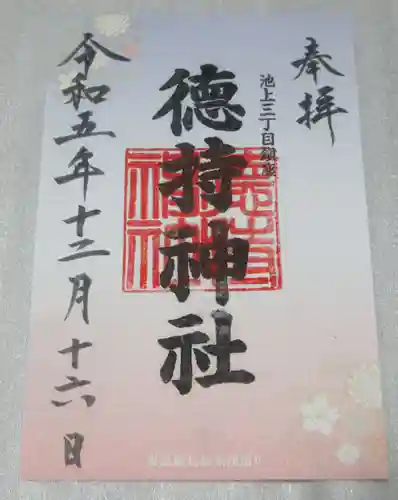 奉拝
池上三丁目鎮座
徳持神社
令和五年十二月十六日